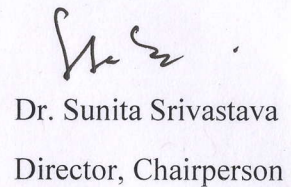 Dr. Sunita Srivastava
Director, Chairperson